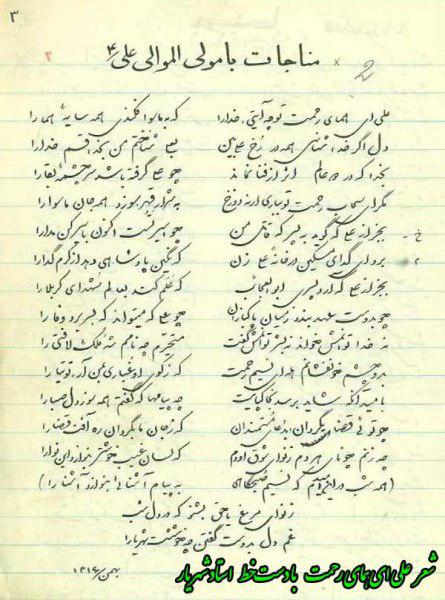 ۳
مناجات با مولی الموالی علی ع
علی ای همای رحمت تو چه آیتی خدا را که به ماسوا فکندی همه سایهٔ هما را
دل اگر خداشناسی همه در رخ علی بین به علی شناختم من بخدا قسم خدا را
بخدا که در دو عالم اثر از فنا نماند چو علی گرفته باشد سر چشمه بقا را
مگر ای سحاب رحمت تو بباری ارنه دوزخ به شرار قهر سوزد همه جان ماسوا را
بجز از علی که گوید به پسر که قاتل من چو اسیر تست اکنون به اسیر کن مدارا
برو ای گدای مسکین در خانهٔ علی زن که نگین پادشاهی دهد از کرم گدا را
بجز از علی که آرد پسری ابوالعجائب که علم کند بعالم شهدای کربلا را
چو بدوست عهد بندد ز میان پاکبازان چو علی که میتواند که بسر برد وفا را
نه خدا توانمش خواند نه بشر توانمش گفت متحیرم چه نامم شه ملک لافتی را
بدو چشم خونفشانم هله ای نسیم رحمت که ز کوی او غباری بمن آر توتیا را
بامید آنکه شاید برسد بخاک پایت چه پیامها که گفتم همه سوز دل صبا را
چو توئی قضای گردان بدعای مستمندان که ز جان ما بگردان ره آفت قضا را
چه زنم چو نای هر دم ز نوای شوق او دم که لسان غیب خوشتر بنوازد این نوا را
(همه شب در این امیدم که نسیم صبحگاهی به پیام آشنائی بنوازد آشنا را)
ز نوای مرغ یا حق بشنو که در دل شب
غم دل بدوست گفتن چه خوشست شهریارا
بهمن
شعر علی ای همای رحمت با دست خط استاد شهریار